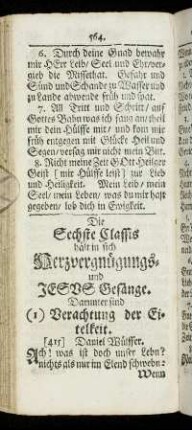 564.
6. Durch deine Gnad bewahr
mir HErr Leib/ Seel und Ehr/ ver-
gieb die Missethat. Gefahr und
Sünd und Schande zu Wasser und
zu Lande abwende früh und spat.
7. All Tritt und Schritt/ auf
Gottes Bahn was ich fang an/ theil
mir dein Hülffe mit/ und kom mir
früh entgegen mit Glück Heil und
Segen/ versag mir nicht mein Bitt.
8. Richt meine Zeit GOtt Heilger
Geist (mit Hülffe leist) zur Lieb
und Heiligkeit. Mein Leib/ mein
Seel/ mein Leben/ was du mir hast
gegeben/ lob dich in Ewigkeit.
Die
Sechste Classis
hält in sich
Hertzvergnügungs-
und
JESUS Gesänge.
Darunter sind
(1) Verachtung der Ei-
telkeit.
[415] Daniel Wülffer.
Ach! was ist doch unser Lebn?
nichts als nur im Elend schwebn:
Wenn